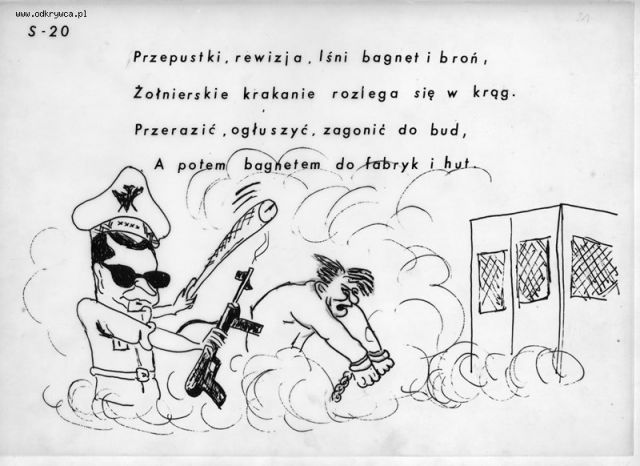 www.odkrywca.pl
S-20
Przepustki, rewizja, lśni bagnet i broń,
Żołnierskie krakanie rozlega się w krąg.
Przerazić, ogłuszyć, zagonić do bud,
A potem bagnetem do fabryk i hut.